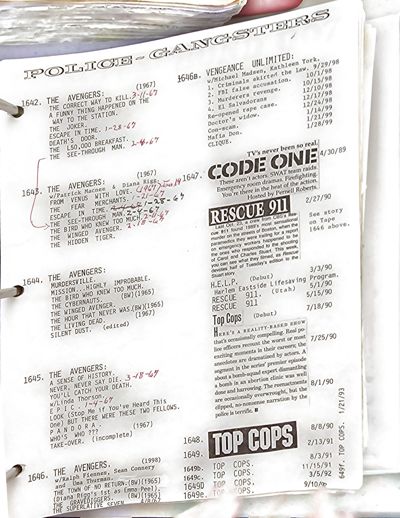 POLICE-GANGSTERS
1642. THE AVENGERS: (1967)
THE CORRECT WAY TO KILL. 3-11-67
A FUNNY THING HAPPENED ON THE
WAY TO THE STATION.
THE JOKER.
ESCAPE IN TIME. 1-28-67
DEATH'S DOOR.
THE £50,000 BREAKFAST.
THE SEE-THROUGH MAN. 2-4-67
1643. THE AVENGERS:
w/Patrick Macnee & Diana Rigg
FROM VENUS WITH LOVE.
FEAR MERCHANTS.
ESCAPE IN TIME. 1-28-67
SEE-THROUGH MAN. 2-4-67
THE BIRD WHO KNEW TOO MUCH.
THE WINGED AVENGER. 2-18-67
THE HIDDEN TIGER.
1644. THE AVENGERS:
MURDERSVILLE.
MISSION...HIGHLY IMPROBABLE.
THE BIRD WHO KNEW TOO MUCH.
THE CYBERNAUTS. (BW)(1965)
THE WINGED AVENGER. (1967)
THE HOUR THAT NEVER WAS.(BW)(1965)
THE LIVING DEAD. (1967)
SILENT DUST. (edited)
1645. THE AVENGERS:
A SENSE OF HISTORY.
NEVER, NEVER SAY DIE. 3-18-67
YOU'LL CATCH YOUR DEATH.
w/Linda Thorson.
E P I C. 1-4-67
LOOK (Stop Me if You've Heard This
One) BUT THERE WERE THESE TWO FELLOWS.
P A N D O R A.
WHO'S WHO ???
TAKE-OVER. (incomplete)
1646. THE AVENGERS. (1998)
w/Ralph Fiennes, Sean Connery
and Uma Thurman.
THE TOWN OF NO RETURN.(BW)(1965)
(Diana Rigg's 1st as Emma Peel).
THE GRAVEDIGGERS.(BW)(1965)
THE SUPERLATIVE SEVEN.
1646b. VENGEANCE UNLIMITED:
w/Michael Madsen, Kathleen York.
1. Criminals skirted the law. 9/29/98
2. FBI false accusation. 10/1/98
3. Murdered revenge. 10/15/98
4. El Salvadorans 12/10/98
Re-opened rape case. 12/24/98
Doctor's widow. 1/14/99
Con-scam. 1/21/99
Mafia Don. 1/28/99
CLIQUE.
1647.
TV's never been so real. 4/30/89
CODE ONE
There are 1 actors. SWAT team raids.
Emergency room dramas. Firefighting.
You're there in the heat of the action.
Hosted by Pernell Roberts.
RESCUE 911
2/27/90
See story
on Tape
1646 above.
H.E.L.P. (Debut) 3/3/90
Harlem Eastside Lifesaving Program.
RESCUE 911. (Utah) 5/1/90
RESCUE 911. 5/15/90
7/18/90
Top Cops (Debut)
HERE'S A REALITY-BASED SHOW
that's occasionally compelling. Real po-
lice officers recount the worst or most
exciting moments in their careers; the
anecdotes are dramatized by actors. A
segment in the series' premier episode
about a bomb-squad expert dismantling
a bomb in an abortion clinic was well
done and harrowing. The reenactments
are occasionally overwrought, but the
clipped, no-nonsense narration by the
police is terrific.
7/25/90
8/1/90
1648. TOP COPS 8/8/90
2/13/91
1649. 8/3/91
1649b. TOP COPS. 11/15/91
1649c. TOP COPS. 3/5/92
1649D TOP COPS.
1649e. TOP COPS.
649f. TOP COPS. 1/21/93